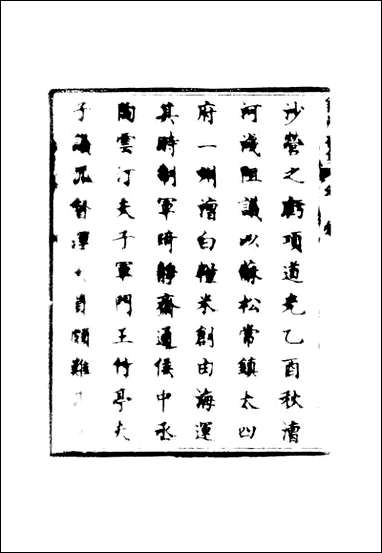 沙營之虧項道光乙酉秋漕
河淺阻議以蘇松常鎮太四
府一州漕白糧米創由海運
其時制軍琦靜齋通侯中丞
陶雲汀夫子軍門王竹亭夫
子